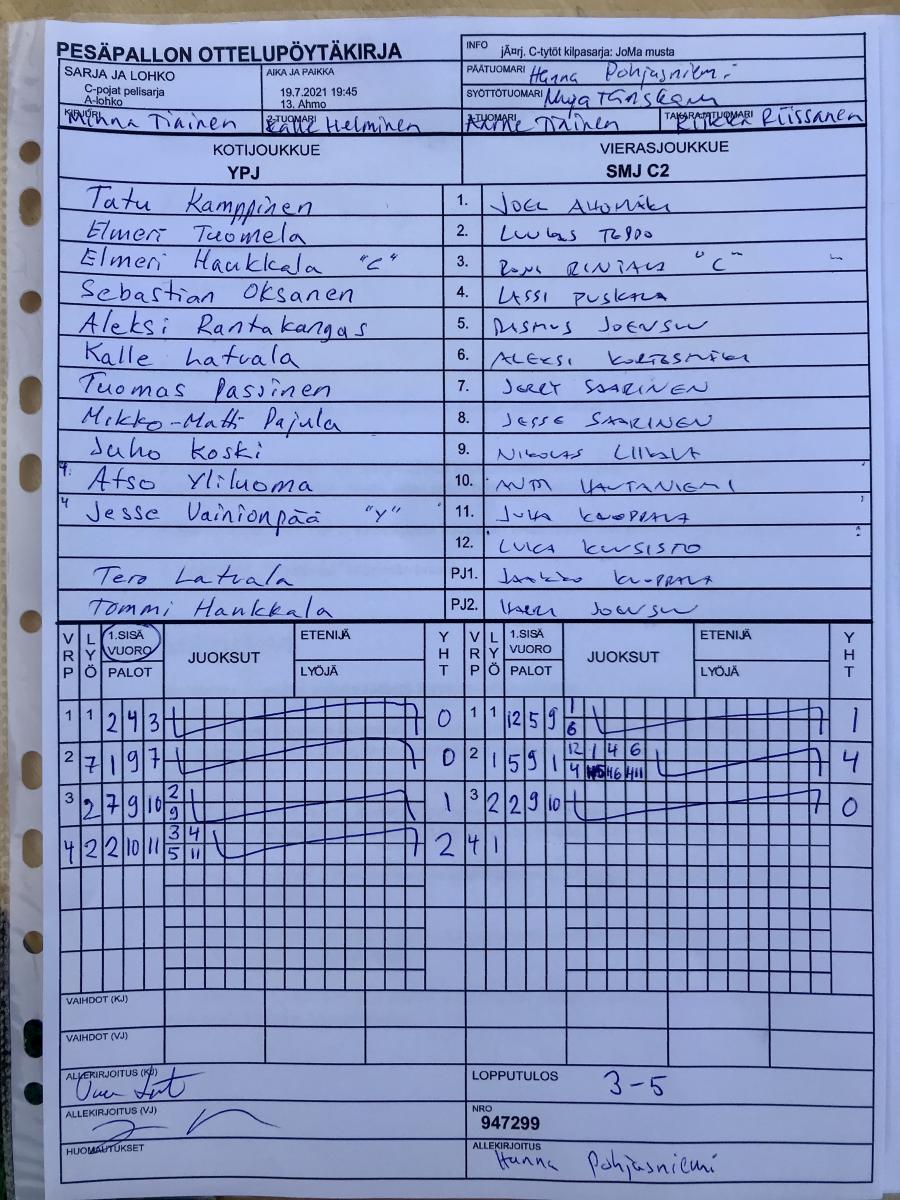 PESÄPALLON OTTELUPÖYTÄKIRJA
INFO jÃ¤rj. C-tytöt kilpasarja: JoMa musta
SARJA JA LOHKO
C-pojat pelisarja
A-lohko
AIKA JA PAIKKA
19.7.2021 19:45
13. Ahmo
PÄÄTUOMARI Hanna Pohjasniemi
SYÖTTÖTUOMARI
KIRJURI Minna Tiainen
2-TUOMARI Kalle Helminen
3-TUOMARI Aarne Tiainen
TAKARAJATUOMARI Riissanen
KOTIJOUKKUE
YPJ
VIERASJOUKKUE
SMJ C2
Tatu Kamppinen 1. JOEL AHOMÄKI
Elmeri Tuomela 2. LUUKAS
Elmeri Haukkala "C" 3. RONI RINTALA "C"
Sebastian Oksanen 4. LASSI PUSKALA
Aleksi Rantakangas 5. RASMUS JOENSUU
Kalle Latvala 6. ALEKSI KORTESMÄKI
Tuomas Passinen 7. JERRY SAARINEN
Mikko-Matti Pajula 8. JESSE SAARINEN
Juho Koski 9. NIKOLAS
4. Atso Yliluoma 10. HAUTANIEMI
4 Jesse Vainionpää "Y" 11. JUHA KUOPPALA
12. LUKA KUUSISTO
Tero Latvala PJ1. JAAKKO KUOPPALA
Tommi Haukkala PJ2. JOENSUU
VRP LYÖ 1.SISÄ VUORO PALOT JUOKSUT ETENIJÄ LYÖJÄ YHT VRP LYÖ 1.SISÄ VUORO PALOT JUOKSUT ETENIJÄ LYÖJÄ YHT
1 1 2 4 3 0 1 1 12 5 9 1 6 1
2 7 1 9 7 0 2 1 5 9 1 12 1 4 6 4 5 46 411 4
3 2 7 9 10 2 9 1 3 2 2 9 10 0
4 2 2 10 11 3 4 5 11 2 4 1
VAIHDOT (KJ)
VAIHDOT (VJ)
ALLEKIRJOITUS (KJ)
LOPPUTULOS 3-5
ALLEKIRJOITUS (VJ)
NRO
947299
HUOMAUTUKSET
ALLEKIRJOITUS
Hanna Pohjasniemi